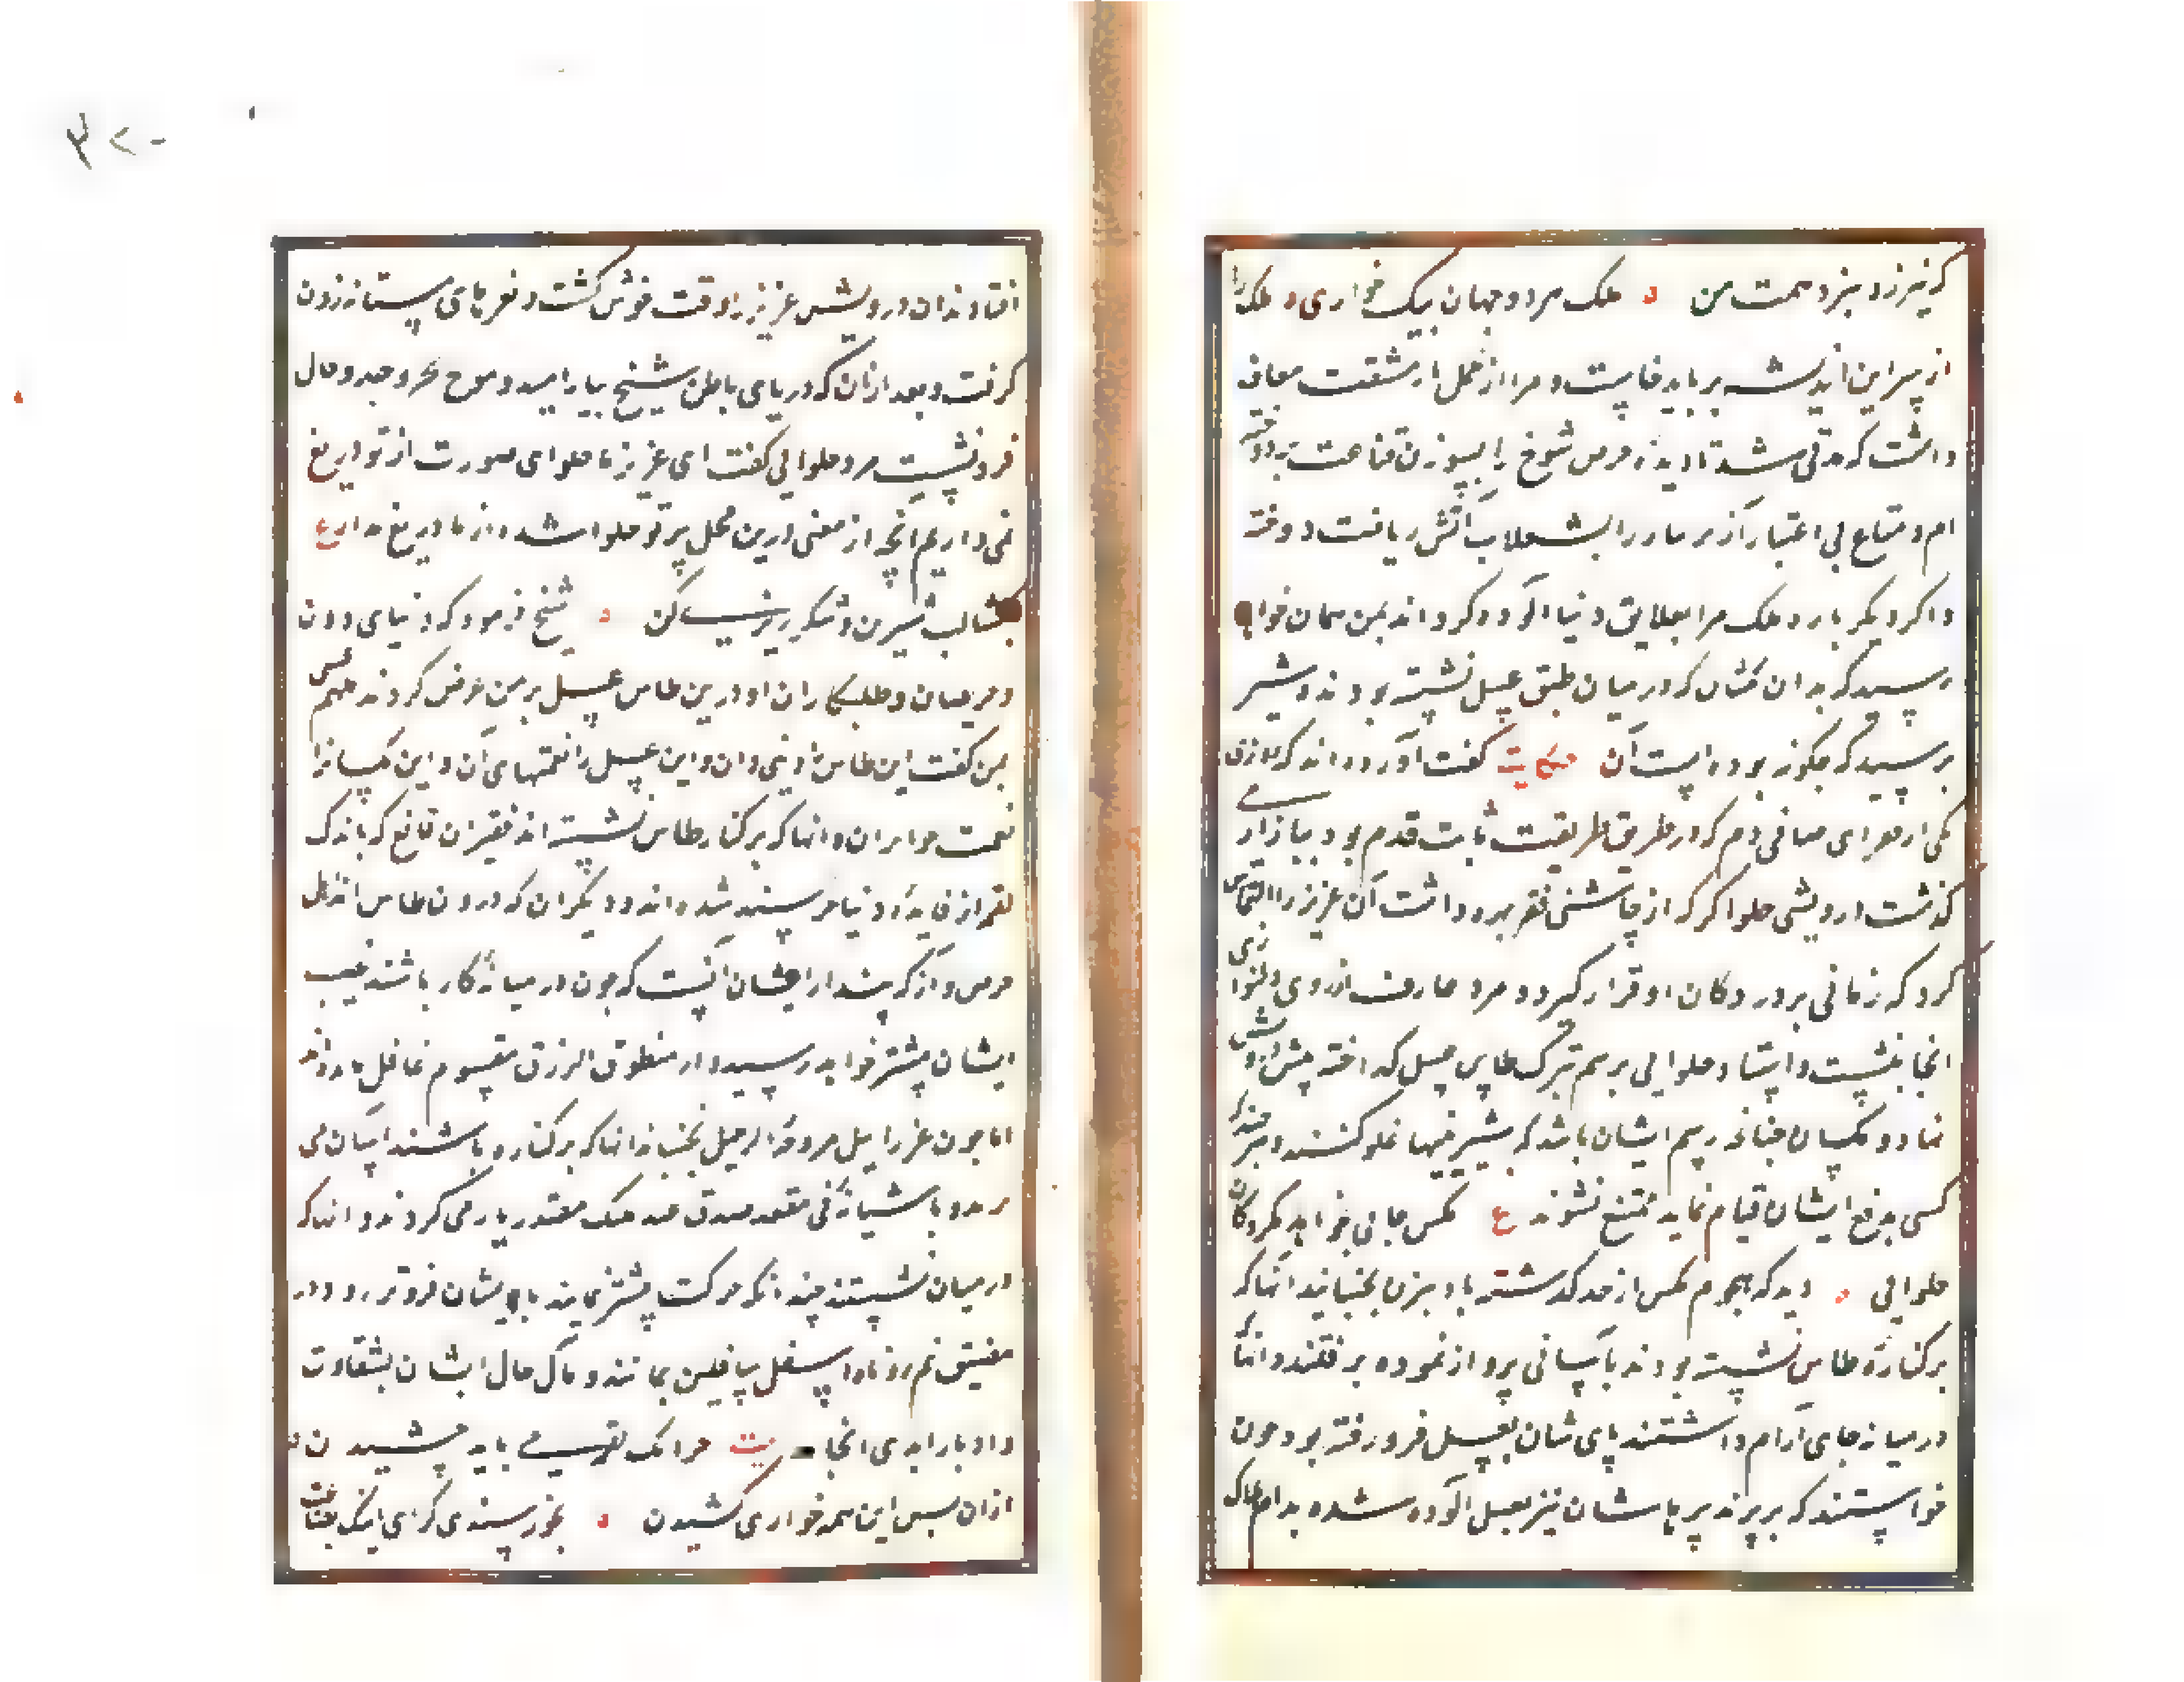 که نیرزد بنزد همت من ملک هر دو جهان بیک خواری و ملک را
از سر این اندیشه بر باید خاست و مرا از تحمل این مشقت معاف
داشت که مدتی شد تا دیده حرص شوخ را بسوزن قناعت بردوخته
ام و متاع بی اعتبار آز را بشعله آتش ریاضت سوخته
و اگر دیگر باره ملک مرا بعلایق دنیا آلوده گرداند بمن همان خواهد
رسید که بدان مگسان که در میان طبق عسل نشسته بودند شیر
پرسید که چگونه بوده است آن حکایت گفت آورده اند که روزی
یکی از فقرای صافی دم که در طریق طریقت ثابت قدم بود ببازار
گذشت درویشی حلواگر که از چاشنی فقر بهره داشت آن عزیز را التماس
کرد که زمانی بر در دکان او قرار گیرد و مرد عارف از روی دلنوازی
انجا بنشست و استاد حلوایی برسم تبرک طاس عسل گداخته پیش درویش
نهاد و مگسان چنانچه رسم ایشان باشد که بشیرینیها غلو کنند و هرچند که
کسی بدفع ایشان قیام نماید ممتنع نشوند ع مگس جایی نخواهد رفت جز دکان
حلوایی دید که هجوم مگس از حد گذشته بادبیزن بجنبانید انها که
بر کناره طاس نشسته بودند بآسانی پرواز نموده برفتند و انها که
در میانه جای آرام داشتند پای شان بعسل فرو رفته بود چون
خواستند که بر پرند پرهاشان نیز بعسل آلوده شده بدام هلاک
افتادند ان درویش عزیز را وقت خوش گشت و نعرهای مستانه زدن
گرفت و بعد از ان که دریای باطن شیخ بیارامید و موج بحر وجد و حال
فرو نشست مرد حلوایی گفت ای عزیز ما حلوای صورت از تو دریغ
نمی داریم آنچه از معنی درین محل بر تو حلوا شده از ما دریغ مدار ع
بگشا لب شیرین و شکر ریزی کن شیخ فرمود که دنیای دون
و حریصان و طلبکاران او درین طاس عسل بر من عرض کردند ملهم غیبی
بمن گفت این طاس را دنیی دان و این عسل را نعمتهای آن و این مگسانرا
نعمت خواران و انها که بر کنار طاس نشسته اند فقیران قانع که باندک
لقمه از مایده دنیا خرسند شده اند و دیگران که درون طاس اند اهل
حرص و آز که پندار ایشان آنست که چون در میانه کار باشند نصیب
ایشان بیشتر خواهد رسید و از منطوق الرزق مقسوم غافل مانده اند
اما چون عزراییل مروحه الرحیل بجنباند انها که بر کناره باشند آسان می
پرند و باشیانه فی مقعد صدق عند ملیک مقتدر باز می گردند و انها که
در میان نشستند چندانکه حرکت بیشتر نمایند پای ایشان فروتر رود و در
مضیق ثم رددناه اسفل سافلین بمانند و مآل حال ایشان بشقاوت
و ادبار ابدی انجامد بیت چرا یک لقمه می باید چشیدن
از ان پس این همه خواری کشیدن بخرسندی گرای اینک بضاعت